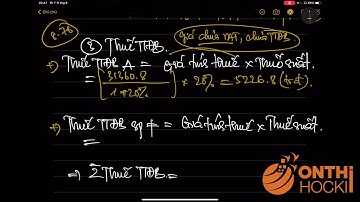 20:37 Th 7 9 thg 8
Ghi chú
2.76
③ Thuế TTĐB. giá chưa VAT, chưa TTĐB
+) Thuế TTĐB A = Giá tính thuế × Thuế suất.
= 31360.8 / 1+20% × 20% = 5226.8 (trđ).
+) Thuế TTĐB sp = Giá tính thuế × Thuế suất.
=
⇒ Σ Thuế TTĐB =
ONTHI
HOCKI